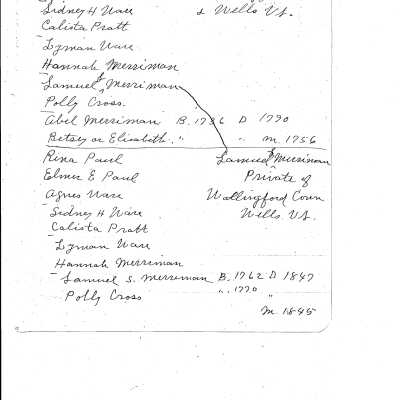 Sidney H Ware & Wells Vt.
Calista Pratt
Lyman Ware
Hannah Merriman
Samuel S Merriman
Polly Cross.
Abel Merriman B. 1736 D 1770
Betsey or Elizabeth. " " m. 1756
Rina Paul Samuel S Merriman
Elmer E Paul Private of
Agnes Ware Wallingford Conn
Sidney H Ware Wells Vt.
Calista Pratt
Lyman Ware
Hannah Merriman
Samuel S. Merriman B. 1762 D 1847
Polly Cross " 1770 "
m 1845